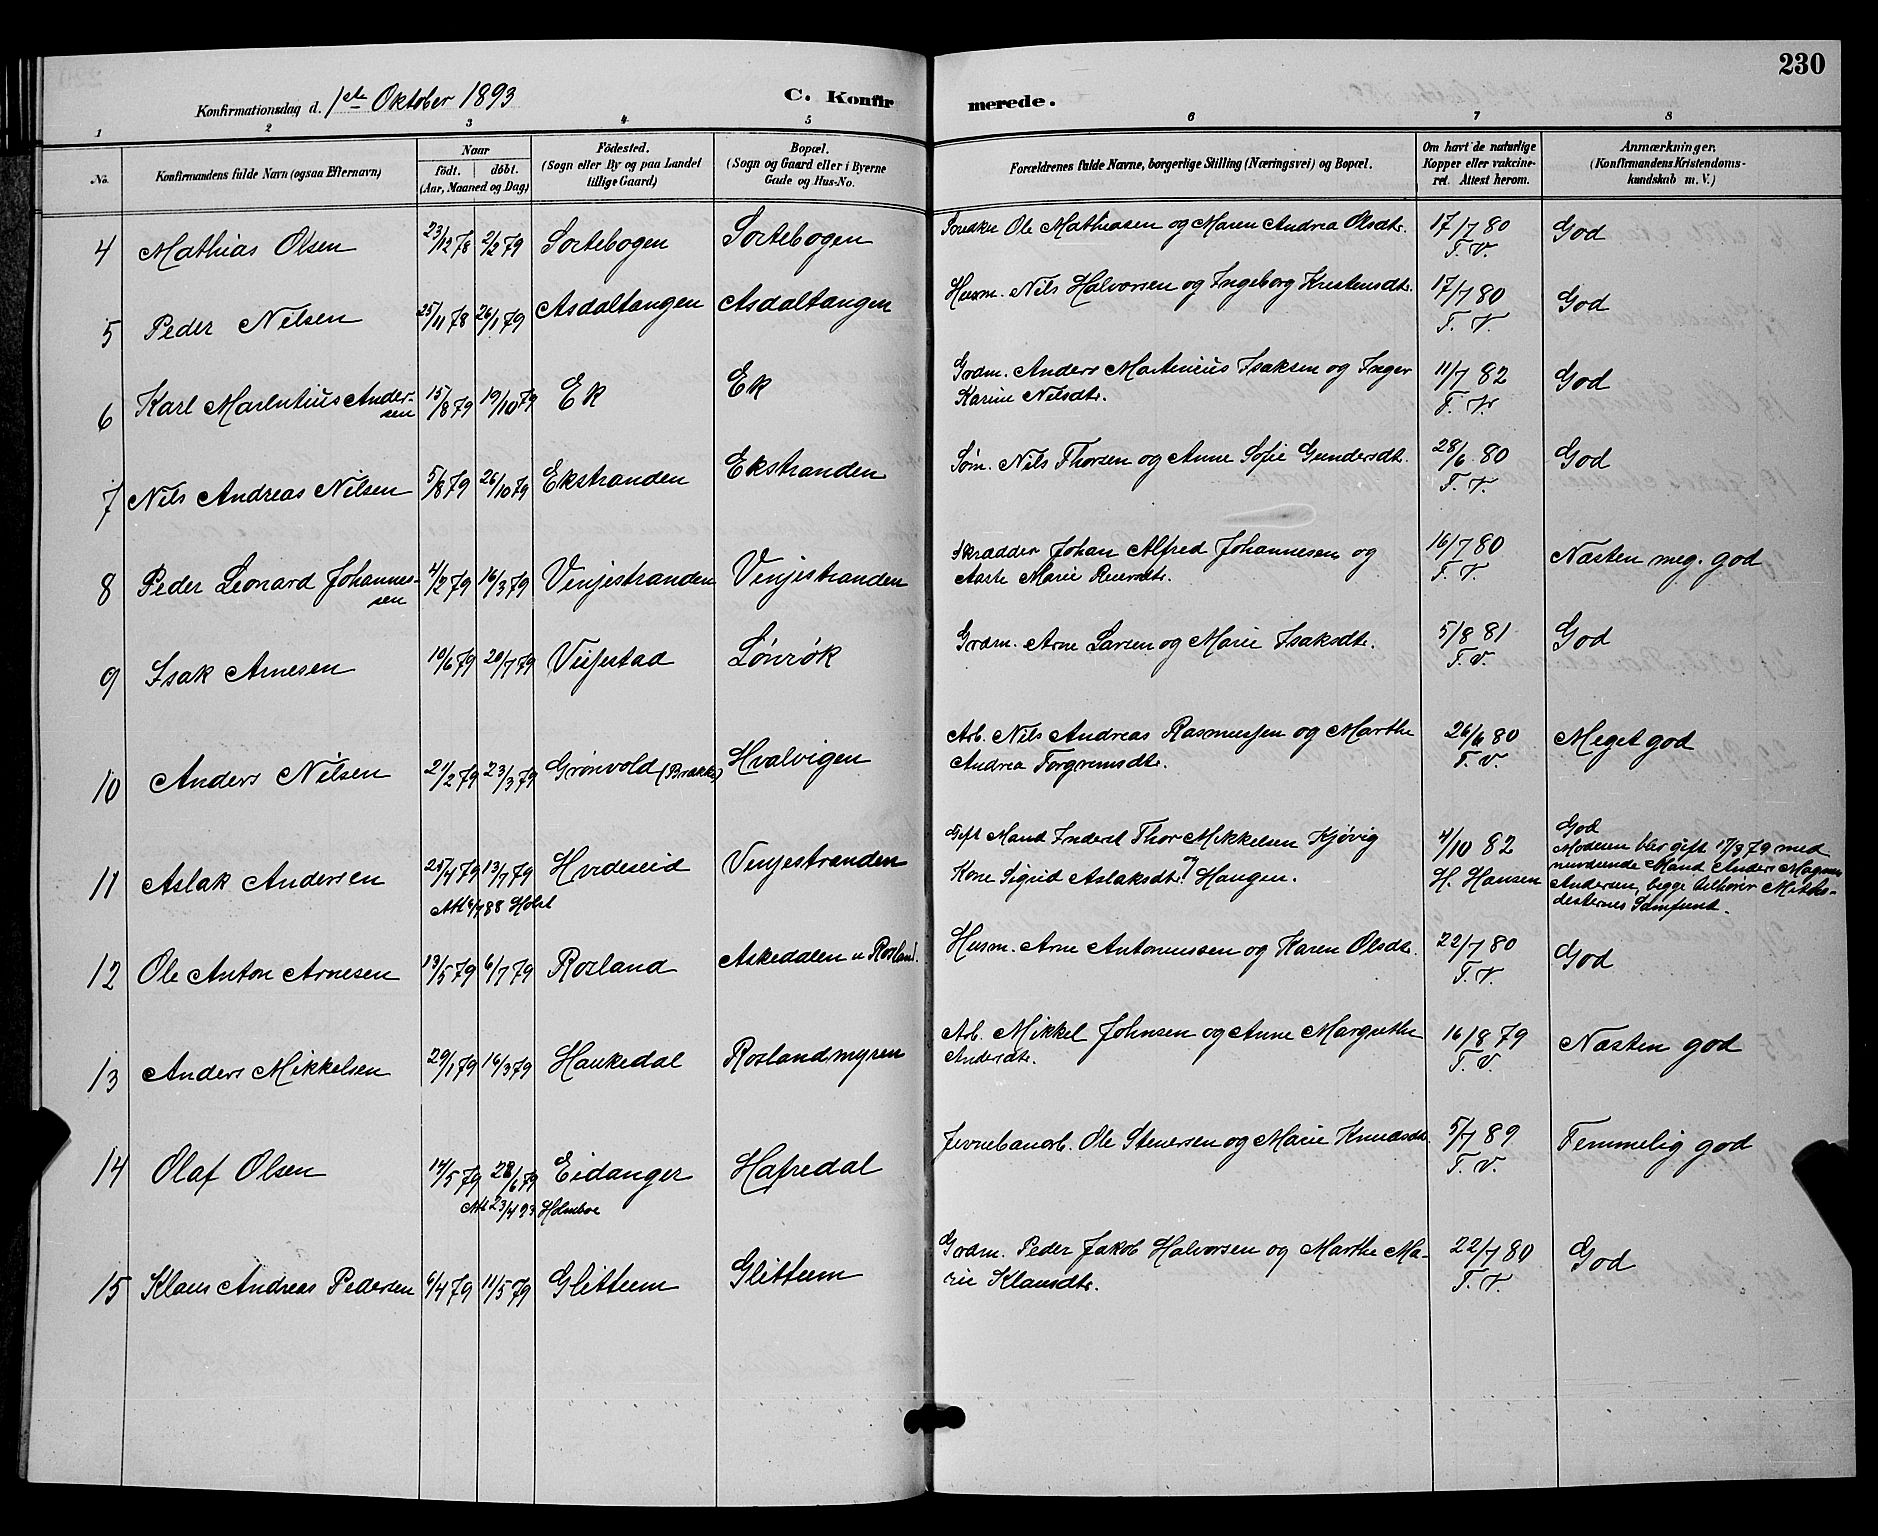 230
Konfirmationsdag d. 1ste Oktober 1893
C. Konfirmerede.
1 2 3 4 5 6 7 8
No.
Konfirmandens fulde Navn (ogsaa Efternavn)
Naar
födt. döbt.
(Aar, Maaned og Dag)
Födested.
(Sogn eller By og paa Landet
tillige Gaard)
Bopæl.
(Sogn og Gaard eller i Byerne
Gade og Hus-No.
Forældrenes fulde Navne, borgerlige Stilling (Næringsvei) og Bopæl.
Om havt de naturlige
Kopper eller vakcine-
ret. Attest herom.
Anmærkninger.
(Konfirmandens Kristendoms-
kundskab m. V.)
4 Mathias Olsen 23/12 78 2/2 79 Sortebogen Sortebogen Ole Mathiasen og Maren Andrea Olsdtr. 17/7 80 God
T. V.
5 Peder Nilsen 25/11 78 26/1 79 Asdaltangen Asdaltangen Husm. Nils Halvorsen og Ingeborg Kristensdtr. 17/7 80 God
T. V.
6 Karl Marentius Ander- 15/8 79 19/10 79 Ek Ek Grdm. Anders Martinius Isaksen og Inger 11/7 82 God
sen Karine Nilsdtr. T. V.
7 Nils Andreas Nilsen 5/8 79 26/10 79 Ekstranden Ekstranden Søm. Nils Thorsen og Anne Sofie Gundersdtr. 28/6 80 God
T. V.
8 Peder Leonard Johannes- 4/2 79 16/3 79 Vinjestranden Vinjestranden Skrædder Johan Alfred Johannesen og 16/7 80 Næsten meg. god
sen Marie T. V.
9 Isak Arnesen 10/6 79 20/7 79 Lønrøk Grdm. Arne Larsen og Marie Isaksdtr. 5/8 81 God
T. V.
10 Anders Nilsen 21/2 79 23/3 79 Grønvold (Brække) Hvalvigen Arb. Nils Andreas Rasmussen og Marthe 26/6 80 Meget god
Andrea Torgrimsdtr. T. V.
11 Aslak Andersen 25/4 79 13/7 79 Hvideseid Vinjestranden Gift Mand Inderst Thor Mikkelsen Kjøvig 4/10 82 God
Att 4/7 88 Holst Kone Sigrid Aslaksdtr. og Haugen. H. Hansen Moderen blev gift 17/3 79 med
nuværende Mand Anders Magnus
Andersen, begge tilhører Metho-
desternes Samfund.
12 Ole Anton Arnesen 13/5 79 6/7 79 Rosland Askedalen u Rosland. Husm. Arne Antonussen og Karen Olsdtr. 22/7 80 God
T. V.
13 Anders Mikkelsen 29/1 79 16/3 79 Haukedal Roslandmyren Arb. Mikkel Johnsen og Anne Margrethe 16/8 79 Næsten god
Andersdtr. T. V.
14 Olaf Olsen 14/5 79 28/6 79 Eidanger Hafredal Jernbanarb. Ole Stenersen og Marie Knudsdtr. 5/7 89 Temmelig god
Att 23/4 93 Holmboe T. V.
15 Klaus Andreas Pedersen 6/4 79 11/5 79 Glittum Glittum Grdm. Peder Jakob Halvorsen og Marthe Ma- 22/7 80 God
rie Klausdtr. T. V.